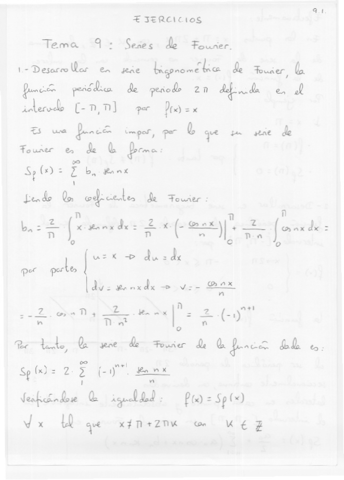 9.1
EJERCICIOS
Tema 9: Series de Fourier.
1.- Desarrollar en serie trigonométrica de Fourier, la
función periódica de periodo 2π definida en el
intervalo [-π, π] por f(x) = x
Es una función impar, por lo que su serie de
Fourier es de la forma:
Sp(x) = ∑₁^∞ bₙ sen nx
Siendo los coeficientes de Fourier:
bₙ = 2/π ∫₀^π x sen nx dx = 2/π x·(-cos nx/n)|₀^π + 2/(π n) ∫₀^π cos nx dx =
por partes { u = x → du = dx
dv = sen nx dx → v = - cos nx/n
= - 2/n · cos nπ + 2/(π n²) · sen nx |₀^π = 2/n (-1)ⁿ⁺¹
Por tanto, la serie de Fourier de la función dada es:
Sp(x) = 2 · ∑₁^∞ (-1)ⁿ⁺¹ · sen nx/n
Verificándose la igualdad: f(x) = Sp(x)
∀ x tal que x ≠ π + 2πK con K ∈ ℤ